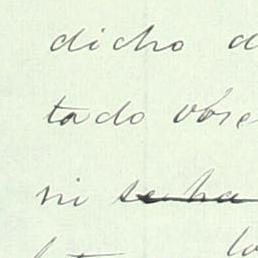 dicho d
tado obse
ni se ha